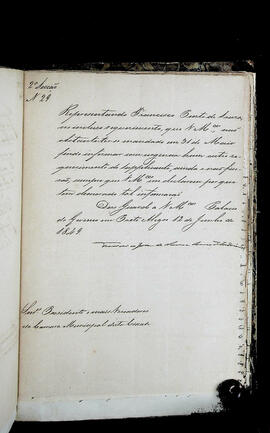 2ª Secção
Nº 29
Representando Francisco Pinto de Souza,
no incluso requerimento, que V. Mces, não
obstante ter-se mandado em 31 de Maio
findo informar com urgencia hum outro re-
querimento do supplicante, ainda o não fize-
rão, cumpre que V. Mces declarem porque
tem demorado tal informação.
Deos Guarde a V. Mces Palacio
do Governo em Porto Alegre 12 de Junho de
1849
Snres Presidente e mais Vereadores
da Camara Municipal desta Cidade